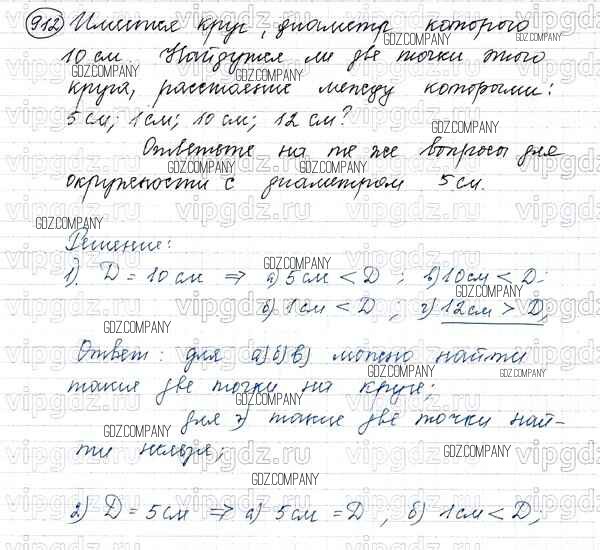 912 Имеется круг, диаметр которого
10 см. Найдутся ли две точки этого
круга, расстояние между которыми:
5 см; 1 см; 10 см; 12 см?
Ответьте на те же вопросы для
окружности с диаметром 5 см.
Решение:
1). D = 10 см ⇒ а) 5 см < D ; в) 10 см < D;
б) 1 см < D ; г) 12 см > D,
Ответ: для а) б) в) можно найти
такие две точки на круге;
для г) такие две точки най-
ти нельзя;
2) D = 5 см ⇒ а) 5 см = D ; б) 1 см < D;
GDZ.COMPANY
vipgdz.ru